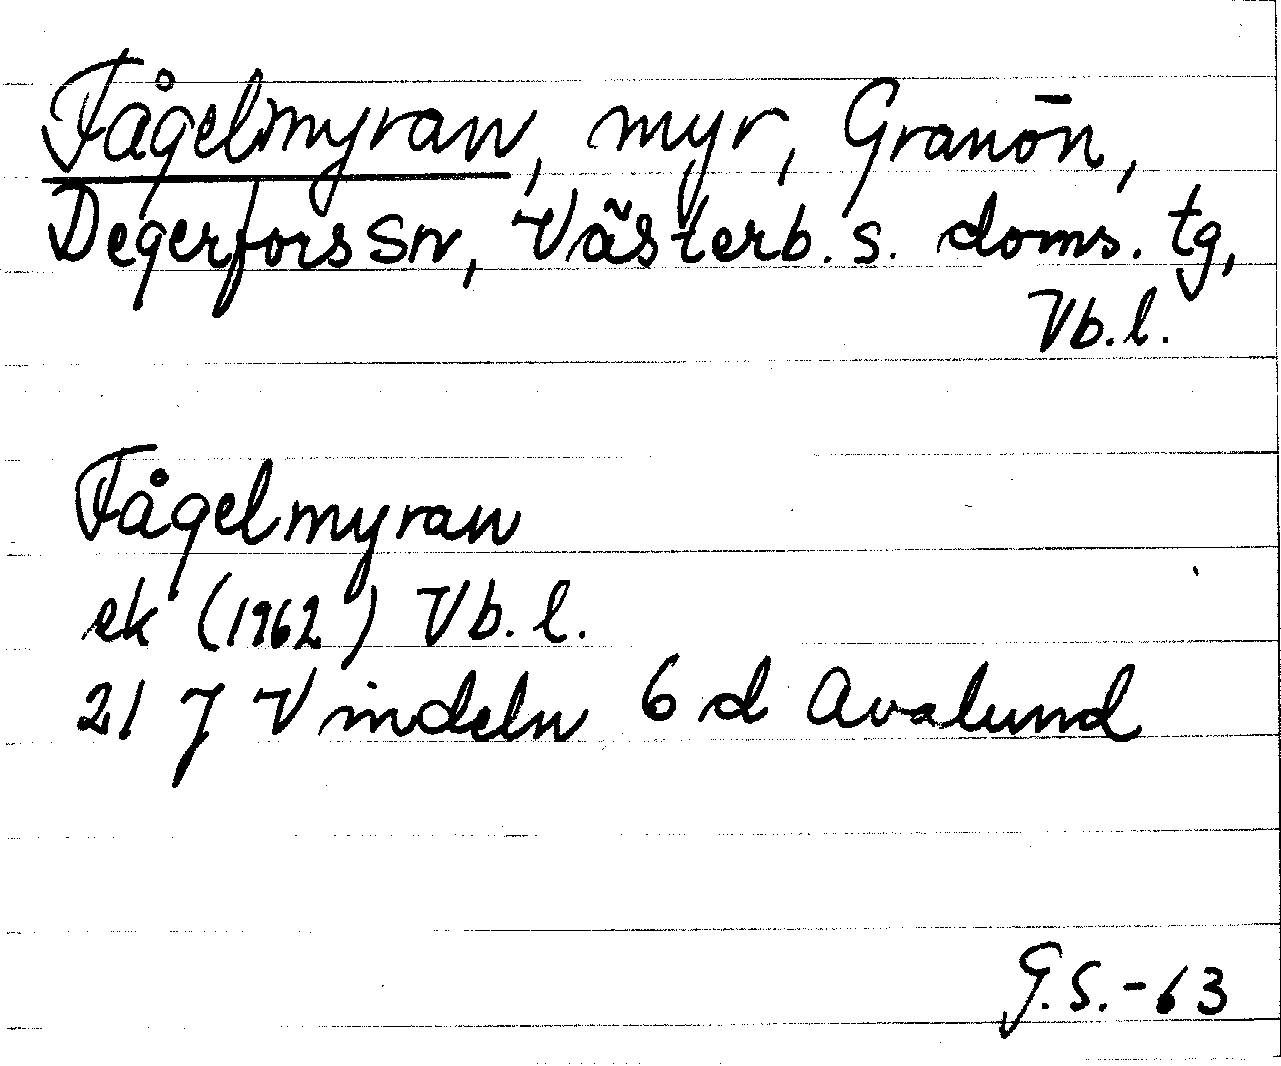 Fågelmyran, myr, Granön,
Degerfors sn, Västerb. s. doms. tg,
Vb. l.
Fågelmyran
ek (1962) Vb. l.
21 J Vindeln 6 d Avalund
G.S.-63